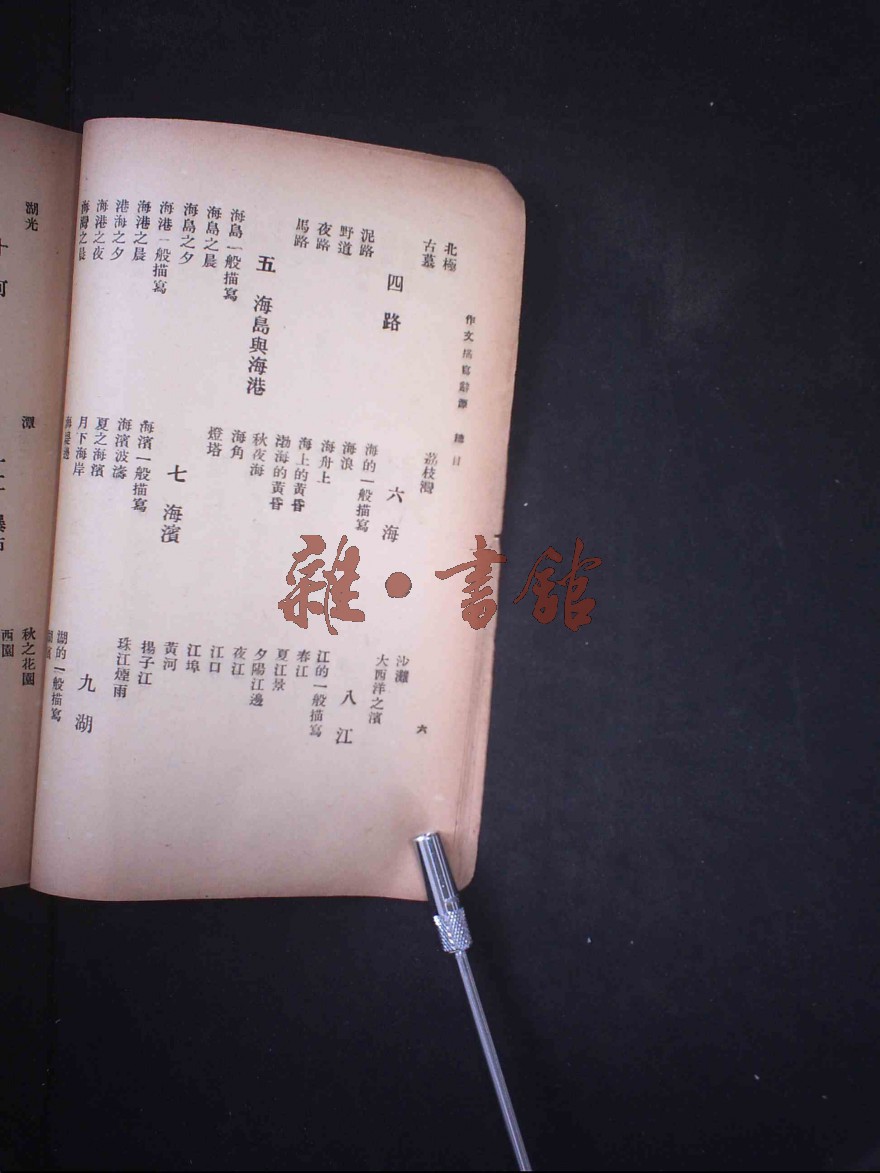 作文描寫辭源 總目
六
北極
古墓
四 路
泥路
野道
夜路
馬路
五 海島與海港
海島一般描寫
海島之晨
海島之夕
海港一般描寫
海港之晨
港海之夕
海港之夜
海灣之晨
荔枝灣
六 海
海的一般描寫
海浪
海舟上
海上的黃昏
渤海的黃昏
秋夜海
海角
燈塔
七 海濱
海濱一般描寫
海濱波濤
夏之海濱
月下海岸
沙灘
大西洋之濱
八 江
江的一般描寫
春江
夏江景
夕陽江邊
夜江
江口
江埠
黃河
揚子江
珠江煙雨
九 湖
湖的一般描寫
湖光
潭
秋之花園
西園
雜·書館